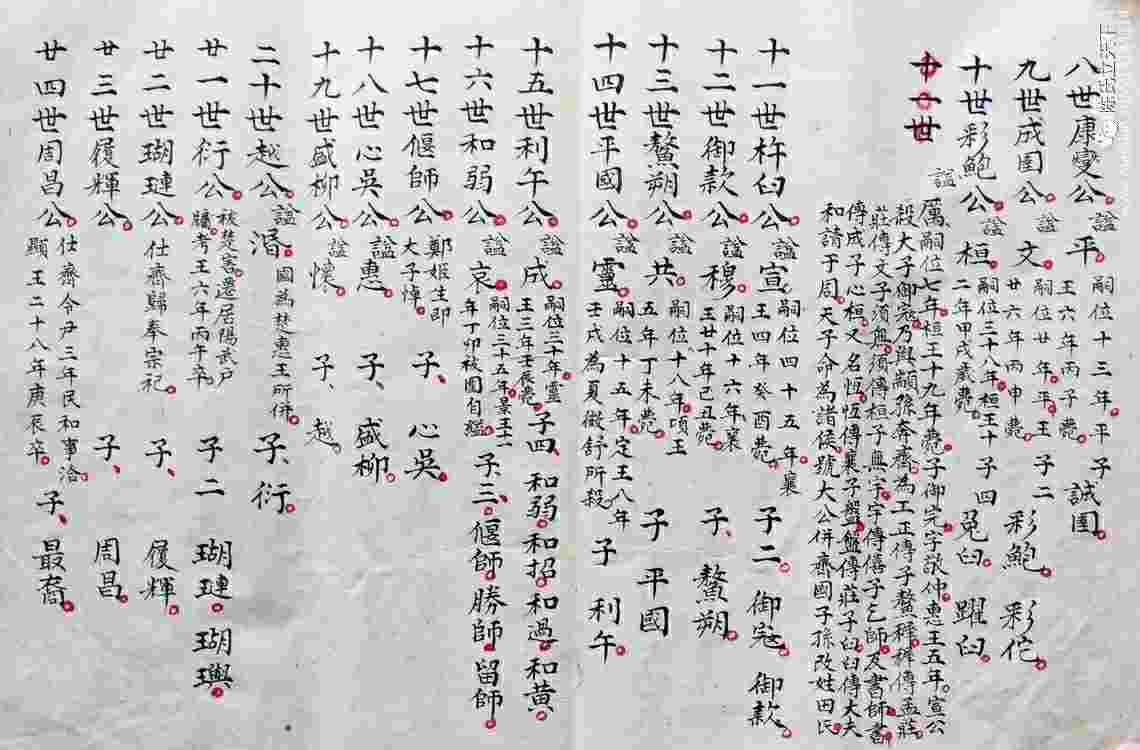 八世康燮公謚平嗣位十三年平王六年丙子薨子誠圉
九世成圉公謚文嗣位廿年平王廿六年丙申薨子二彩鮑彩佗
十世彩鮑公謚桓嗣位三十八年桓王十二年甲戌歲薨子四免臼躍臼
十一世
謚厲嗣位七年桓王十九年薨子御完字敬仲惠王五年宣公
殺大子御寇乃與顓孫奔齊為工正傳子穉傳孟莊
莊傳文子須無須傳桓子無宇宇傳僖子乞師及書師書
傳成子心桓又名恆恆傳襄子盤盤傳莊子臼臼傳大夫
和請于周天子命為諸侯號大公併齊國子孫改姓田氏
十一世杵臼公謚宣嗣位四十五年襄王四年癸酉薨子二御寇御款
十二世御款公謚穆嗣位十六年襄王廿十年己丑薨子鰲朔
十三世鰲朔公謚共嗣位十八年頃王五年丁未薨子平國
十四世平國公謚靈嗣位十五年定王八年壬戌為夏徵舒所殺子利午
十五世利午公謚成嗣位三十年靈王三年壬辰薨子四和弱和招和過和黄
十六世和弱公謚哀嗣位三十五年景王二年丁卯被圍自縊子三偃師勝師留師
十七世偃師公鄭姬生即大子悼子心吳
十八世心吳公謚惠子盛柳
十九世盛柳公謚懷子越
二十世越公謚湣國為楚惠王所併子衍
廿一世衍公被楚害還居陽武户牖考王六年丙午卒子二瑚璉瑚璵
廿二世瑚璉公仕齊歸奉宗祀子履輝
廿三世履輝公子周昌
廿四世周昌公仕齊令尹三年民和事洽顯王二十八年庚辰卒子最裔